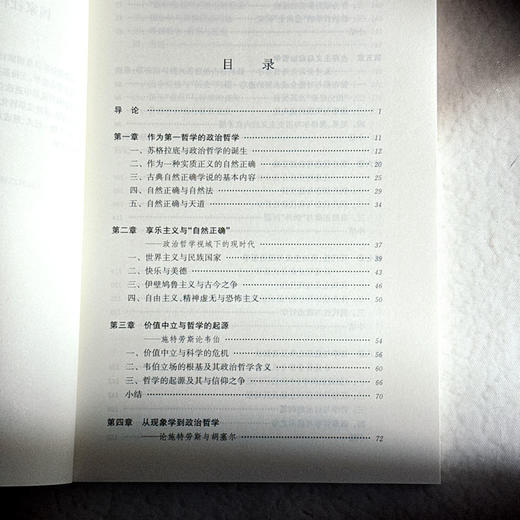 目 录
导 论 1
第一章 作为第一哲学的政治哲学 11
一、苏格拉底与政治哲学的诞生 12
二、作为一种实质正义的自然正确 20
三、古典自然正确学说的基本内容 25
四、自然正确与自然法 29
五、自然正确与天道 34
第二章 享乐主义与“自然正确”
——政治哲学视域下的现时代 37
一、世界主义与民族国家 39
二、快乐与美德 43
三、伊壁鸠鲁主义与古今之争 46
四、自由主义、精神虚无与恐怖主义 50
第三章 价值中立与哲学的起源
——施特劳斯论韦伯 54
一、价值中立与科学的危机 56
二、韦伯立场的根基及其政治哲学含义 60
三、哲学的起源及其与信仰之争 66
小结 70
第四章 从现象学到政治哲学
——论施特劳斯与胡塞尔 72